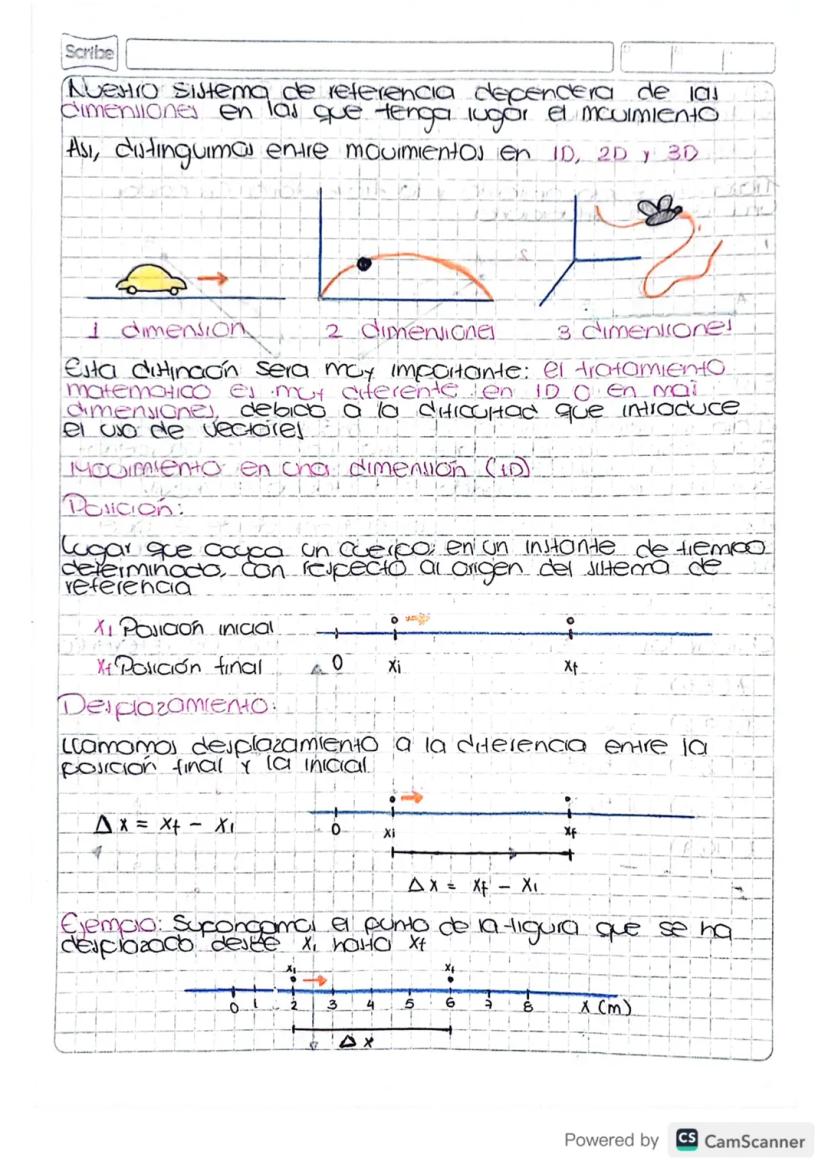 Scribe
Nuestro sistema de referencia dependera de las
dimensiones en las que tenga lugar el movimiento
Asi, distinguimos entre movimientos en 1D, 2D y 3D
1 dimension 2 dimensiones 3 dimensiones
Esta distinación sera muy importante: el tratamiento
matematico es muy diferente en 1D o en mas
dimensiones, debido a la dificultad que introduce
el uso de vectores
Movimiento en una dimensión (1D)
Posición:
Lugar que ocupa un cuerpo, en un instante de tiempo
determinado, con respecto al origen del sistema de
referencia
xi Posición inicial
xf Posición final 0 xi xf
Desplazamiento:
LLamamos desplazamiento a la diferencia entre la
posición final y la inicial
Δx = xf - xi 0 xi xf
Δx = xf - xi
Ejemplo: Supongamos el punto de la figura que se ha
desplazado desde xi hasta xf
xi xf
0 1 2 3 4 5 6 7 8 x (m)
Δx
Powered by CS CamScanner